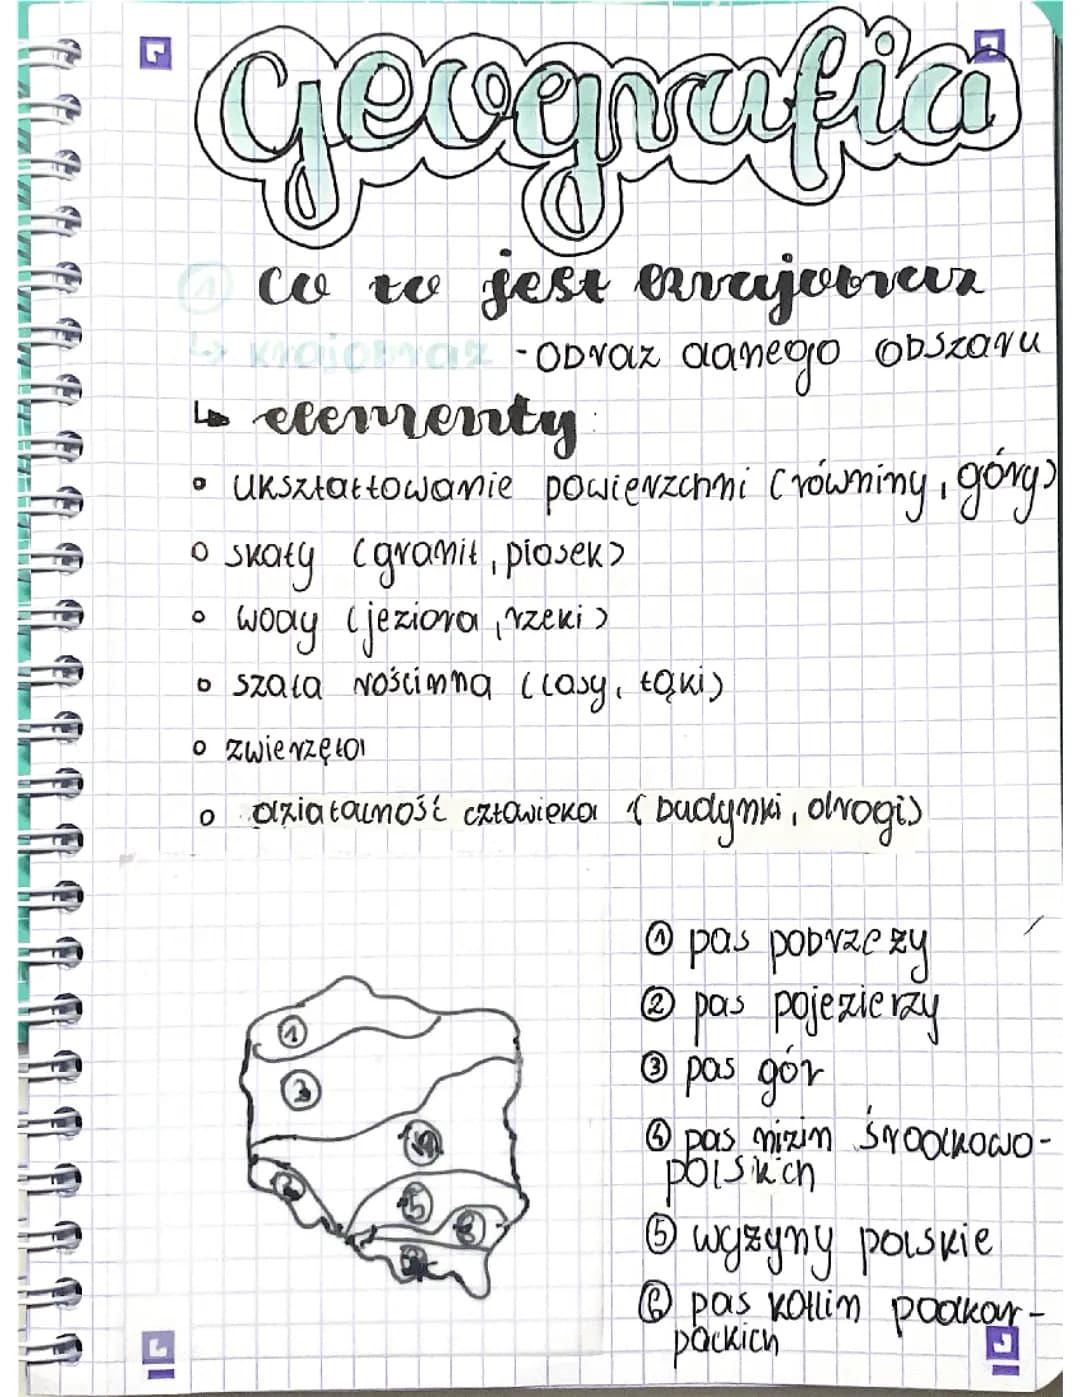 Geografia
① co to jest krajobraz
↳ krajobraz - obraz danego obszaru
↳ elementy:
o ukształtowanie powierzchni (równiny, góry)
o skały (granit, piasek)
o wody (jeziora, rzeki)
o szata roślinna (lasy, łąki)
o zwierzęta
o działalność człowieka (budynki, drogi)
① pas pobrzeży
② pas pojezierzy
③ pas gór
④ pas nizin środkowo-
polskich
⑤ wyżyny polskie
⑥ pas kotlin podkar-
packich
①
⑤